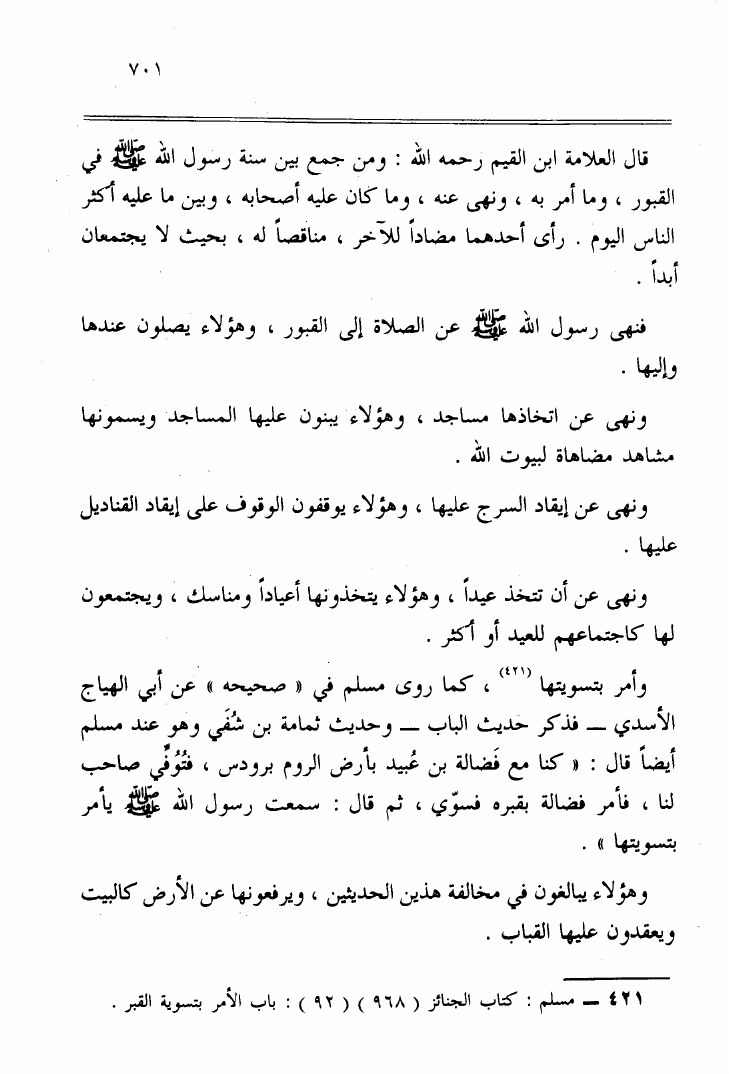 ٧٠١
قال العلامة ابن القيم رحمه الله : ومن جمع بين سنة رسول الله ﷺ في
القبور ، وما أمر به ، ونهى عنه ، وما كان عليه أصحابه ، وبين ما عليه أكثر
الناس اليوم . رأى أحدهما مضاداً للآخر ، مناقصاً له ، بحيث لا يجتمعان
أبداً .
فنهى رسول الله ﷺ عن الصلاة إلى القبور ، وهؤلاء يصلون عندها
وإليها .
ونهى عن اتخاذها مساجد ، وهؤلاء يبنون عليها المساجد ويسمونها
مشاهد مضاهاة لبيوت الله .
ونهى عن إيقاد السرج عليها ، وهؤلاء يوقفون الوقوف على إيقاد القناديل
عليها .
ونهى عن أن تتخذ عيداً ، وهؤلاء يتخذونها أعياداً ومناسك ، ويجتمعون
لها كاجتماعهم للعيد أو أكثر .
وأمر بتسويتها (٤٢١) ، كما روى مسلم في « صحيحه » عن أبي الهياج
الأسدي ــ فذكر حديث الباب ــ وحديث ثمامة بن شُفَي وهو عند مسلم
أيضاً قال : « كنا مع فَضالة بن عُبيد بأرض الروم برودس ، فتُوُفِّي صاحب
لنا ، فأمر فضالة بقبره فسوّي ، ثم قال : سمعت رسول الله ﷺ يأمر
بتسويتها » .
وهؤلاء يبالغون في مخالفة هذين الحديثين ، ويرفعونها عن الأرض كالبيت
ويعقدون عليها القباب .
٤٢١ ــ مسلم : كتاب الجنائز ( ٩٦٨ ) ( ٩٢ ) : باب الأمر بتسوية القبر .